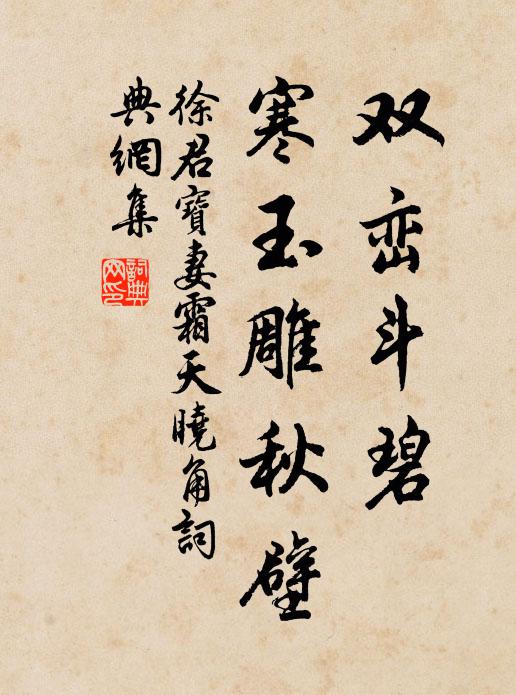 双峦斗碧
寒玉雕秋壁
徐君寳妻霜天曉角詞
典網集
詞典
网印